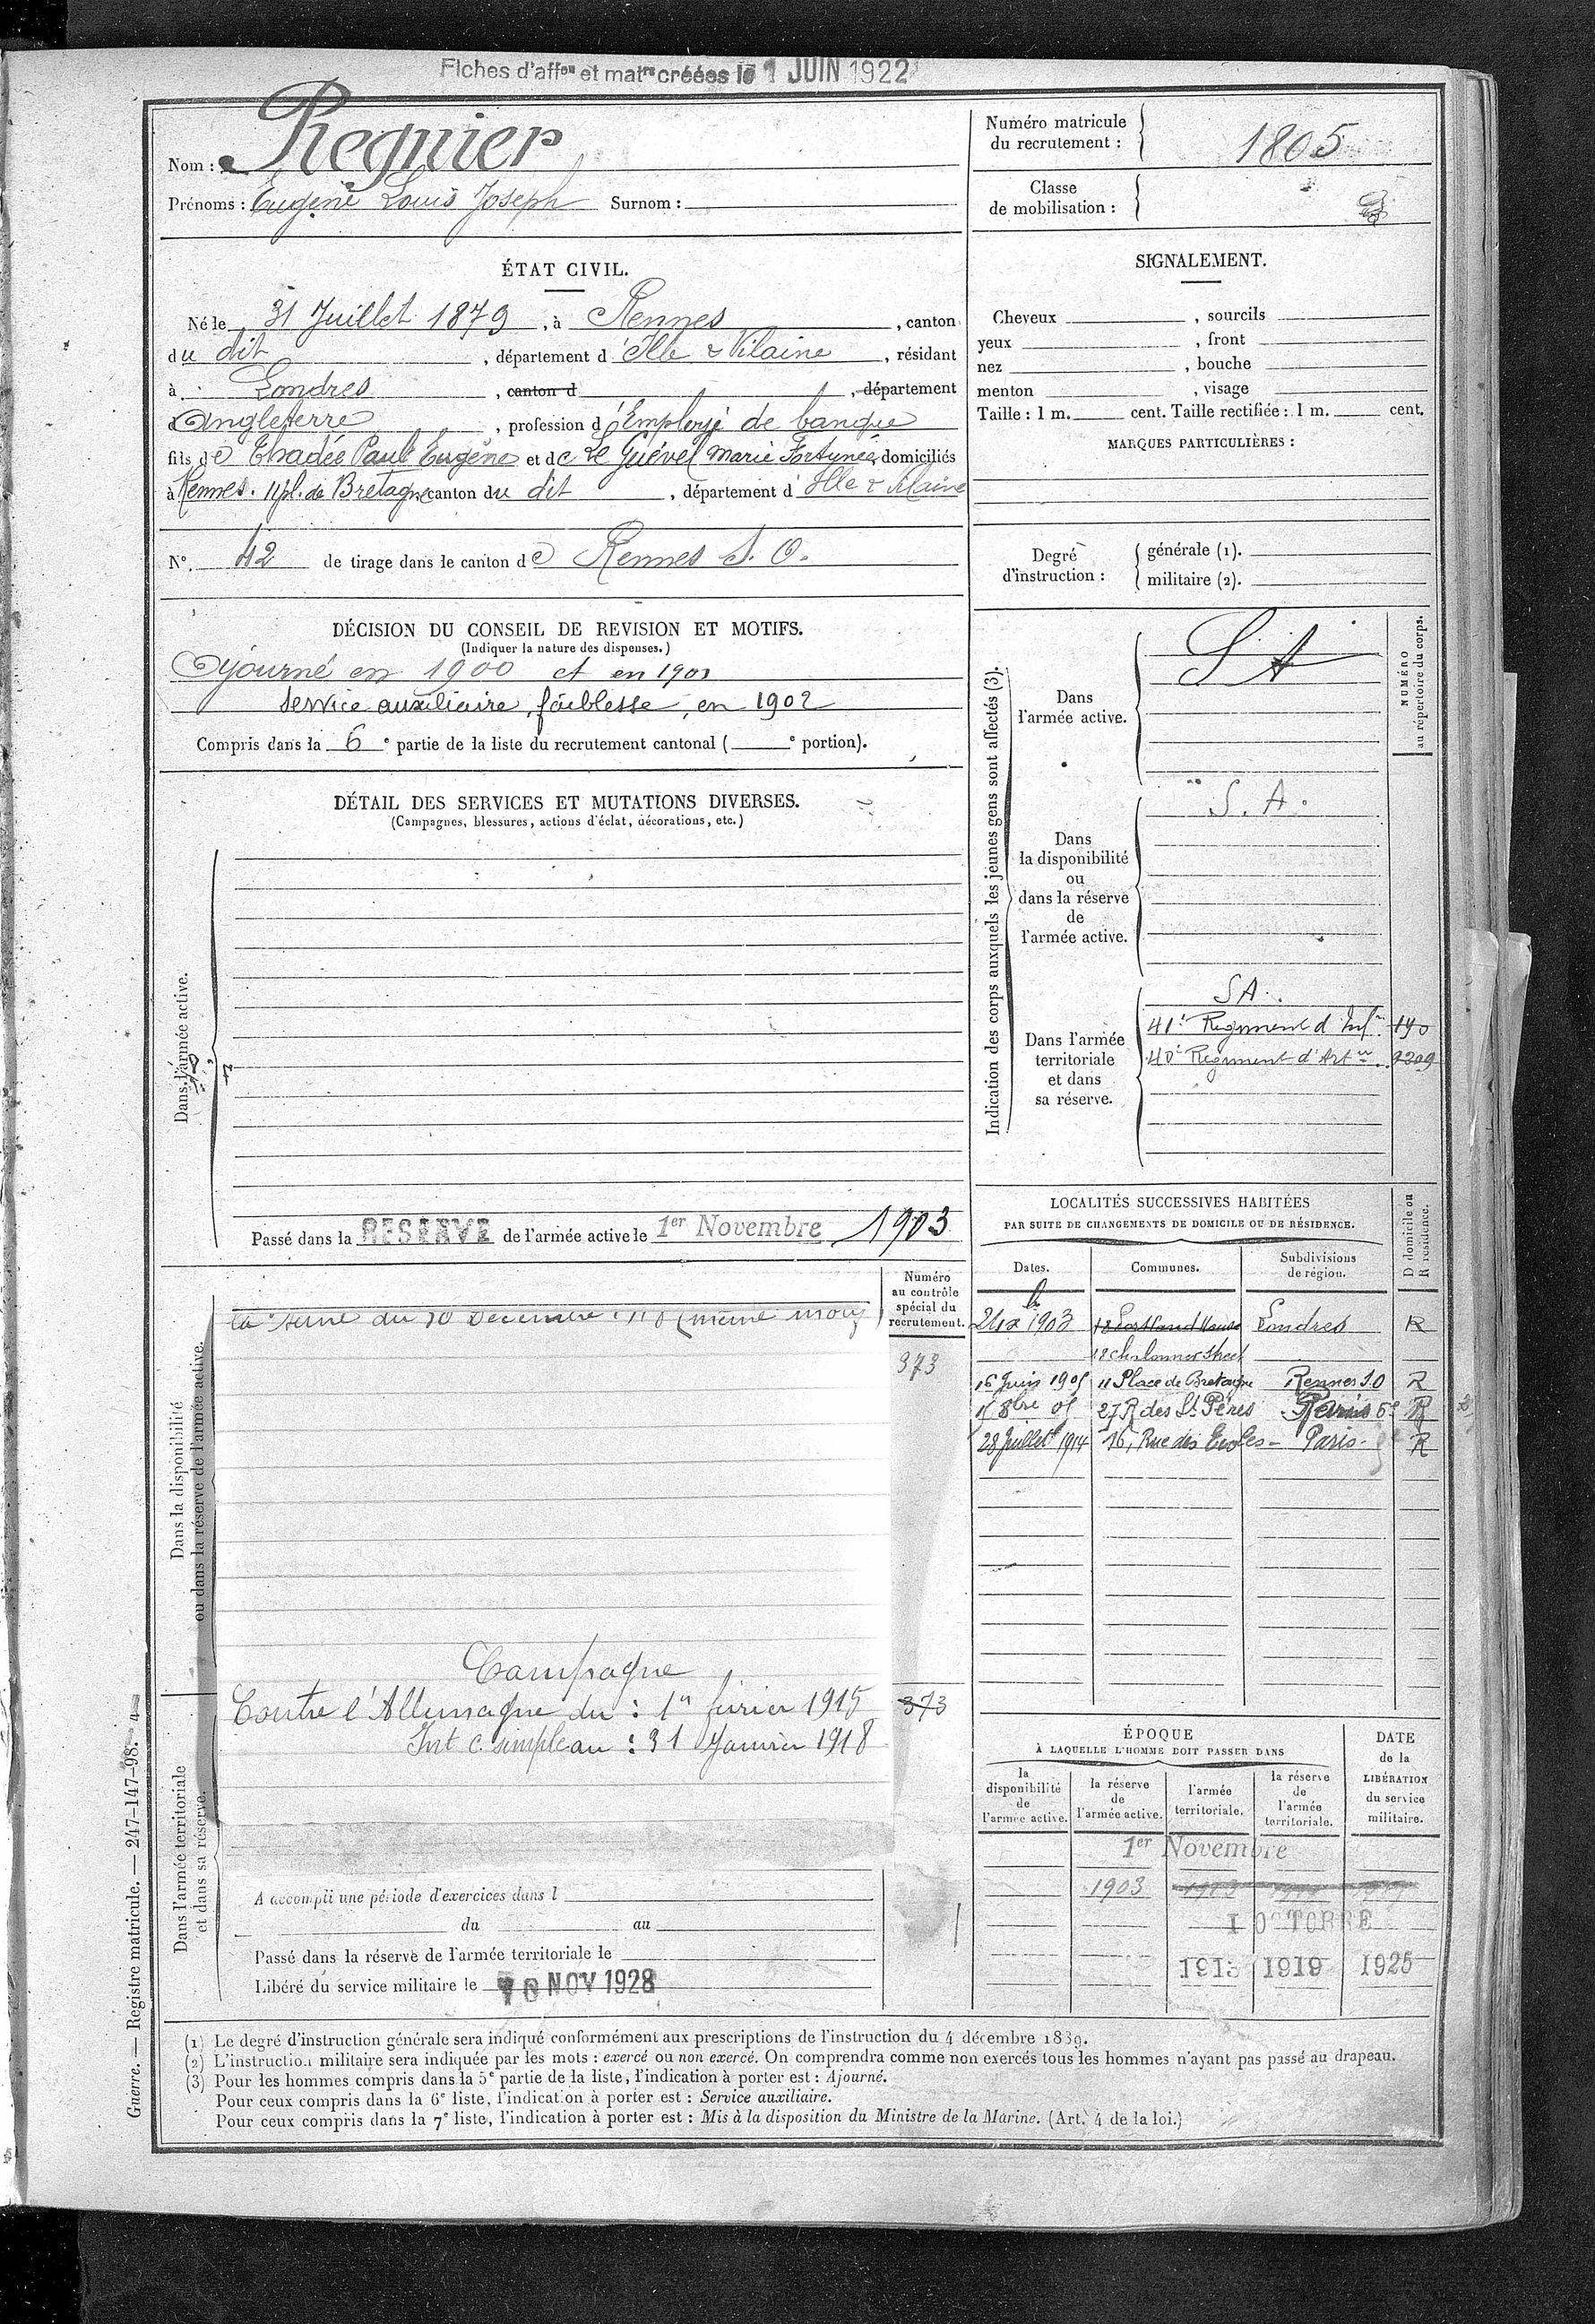 Fiches d'affon et matre créées le 1 JUIN 1922
Nom : Regnier
Prénoms : Eugène Louis Joseph Surnom :
Numéro matricule du recrutement : 1805
Classe de mobilisation :
ÉTAT CIVIL.
Né le 31 Juillet 1879, à Rennes, canton
du dit, département d'Ille & Vilaine, résidant
à Londres, canton d , département
d'Angleterre, profession d'Employé de banque
fils de Thadée Paul Eugène et de Le Guével Marie Fortunée, domiciliés
à Rennes. 11 pl. de Bretagne canton du dit, département d'Ille & Vilaine
N° 42 de tirage dans le canton de Rennes S. O.
DÉCISION DU CONSEIL DE REVISION ET MOTIFS.
(Indiquer la nature des dispenses.)
Ajourné en 1900 et en 1901
Service auxiliaire, faiblesse, en 1902
Compris dans la 6e partie de la liste du recrutement cantonal ( e portion).
DÉTAIL DES SERVICES ET MUTATIONS DIVERSES.
(Campagnes, blessures, actions d'éclat, décorations, etc.)
Dans l'armée active.
Passé dans la RESERVE de l'armée active le 1er Novembre 1903
Numéro au contrôle spécial du recrutement.
Dans la disponibilité
ou dans la réserve de l'armée active.
373
Campagne
Contre l'Allemagne du : 1er février 1915
Int c. simple au : 31 Janvier 1918
373
Dans l'armée territoriale
et dans sa réserve.
A accompli une période d'exercices dans l
du au
Passé dans la réserve de l'armée territoriale le
Libéré du service militaire le 10 NOV 1928
SIGNALEMENT.
Cheveux , sourcils
yeux , front
nez , bouche
menton , visage
Taille : 1 m. cent. Taille rectifiée : 1 m. cent.
MARQUES PARTICULIÈRES :
Degré d'instruction :
générale (1).
militaire (2).
Indication des corps auxquels les jeunes gens sont affectés (3).
NUMÉRO
au répertoire du corps.
Dans
l'armée active.
S A
Dans
la disponibilité
ou
dans la réserve
de
l'armée active.
S. A.
Dans l'armée
territoriale
et dans
sa réserve.
SA.
41e Régiment d'Infie 190
40e Régiment d'Artie. 9209
LOCALITÉS SUCCESSIVES HABITÉES
PAR SUITE DE CHANGEMENTS DE DOMICILE OU DE RÉSIDENCE.
D domicile ou
R résidence.
Dates. Communes. Subdivisions de région.
1903 18 Portland House Londres R
Street
16 Juin 1905 11 Place de Bretagne Rennes S.O R
8bre 05 27 R des Sts Pères Paris 6e R
28 Juillet 1914 16, Rue des Ecoles - Paris - R
ÉPOQUE
À LAQUELLE L'HOMME DOIT PASSER DANS
DATE
de la
LIBÉRATION
du service
militaire.
la disponibilité de l'armée active.
la réserve de l'armée active.
l'armée territoriale.
la réserve de l'armée territoriale.
1er Novembre
1903
1 OCTOBRE
1913 1919 1925
(1) Le degré d'instruction générale sera indiqué conformément aux prescriptions de l'instruction du 4 décembre 1889.
(2) L'instruction militaire sera indiquée par les mots : exercé ou non exercé. On comprendra comme non exercés tous les hommes n'ayant pas passé au drapeau.
(3) Pour les hommes compris dans la 5e partie de la liste, l'indication à porter est : Ajourné.
Pour ceux compris dans la 6e liste, l'indication à porter est : Service auxiliaire.
Pour ceux compris dans la 7e liste, l'indication à porter est : Mis à la disposition du Ministre de la Marine. (Art. 4 de la loi.)
Guerre. — Registre matricule. — 247-147-98. 4